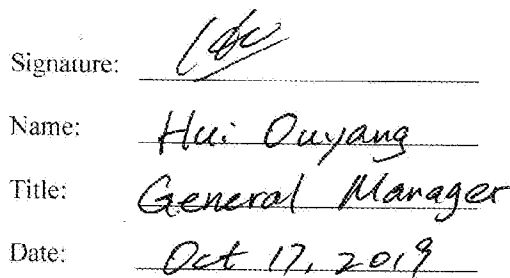 Signature:
Name: Hui Ouyang
Title: General Manager
Date: Oct 17, 2019